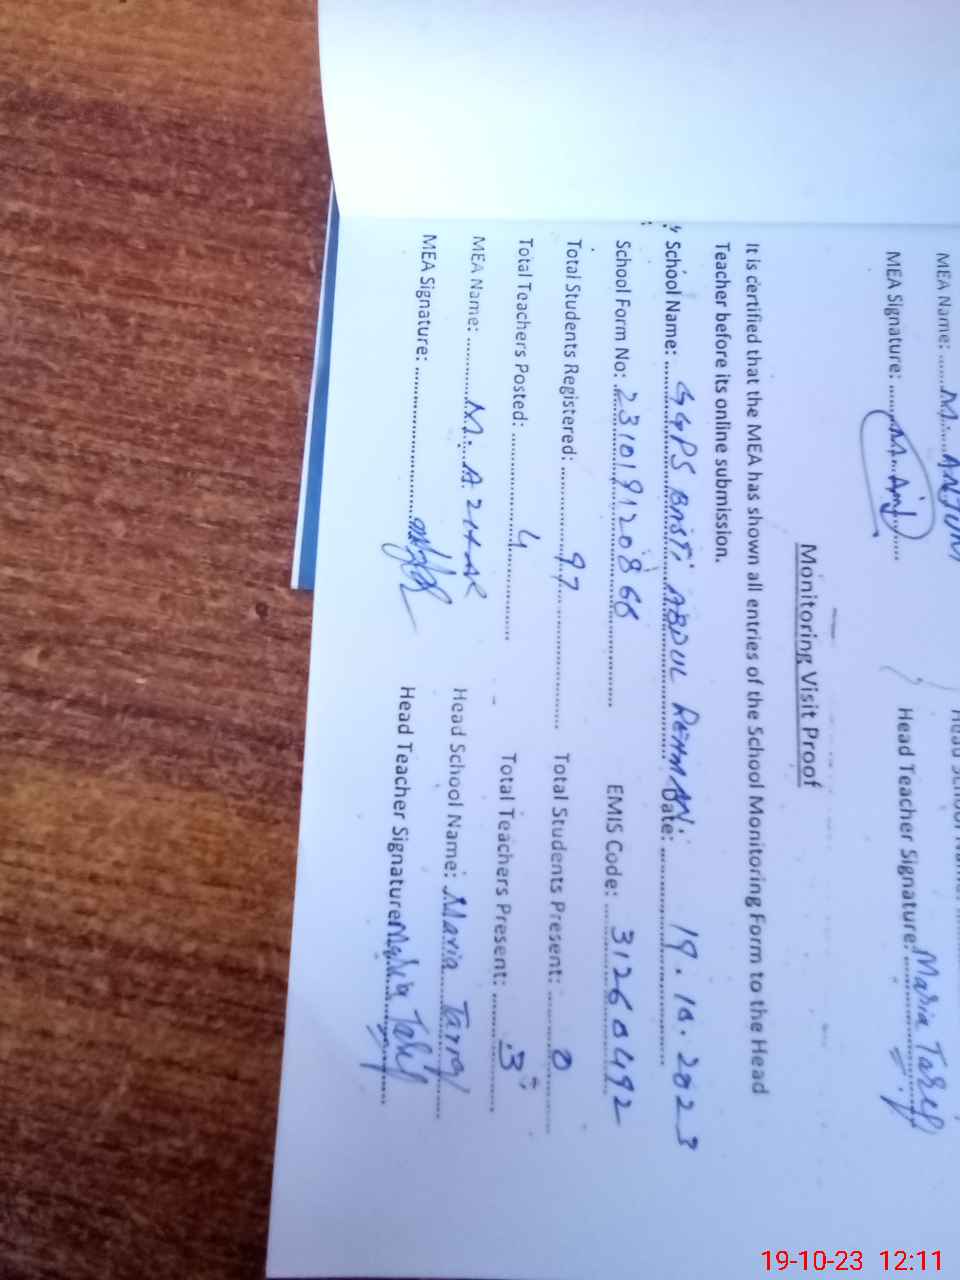 MEA Name: ......M. ANJUM
MEA Signature: ......M. Anj...... Head Teacher Signature: Maria Tareq
Monitoring Visit Proof
It is certified that the MEA has shown all entries of the School Monitoring Form to the Head
Teacher before its online submission.
School Name: GGPS BASTI ABDUL REHMAN. Date: 19.10.2023
School Form No: 231019120866 EMIS Code: 31260492
Total Students Registered: 97 Total Students Present: 0
Total Teachers Posted: 4 Total Teachers Present: 3
MEA Name: M. AZHAR Head School Name: Maria Tareq
MEA Signature: Head Teacher Signature: Maria
19-10-23 12:11